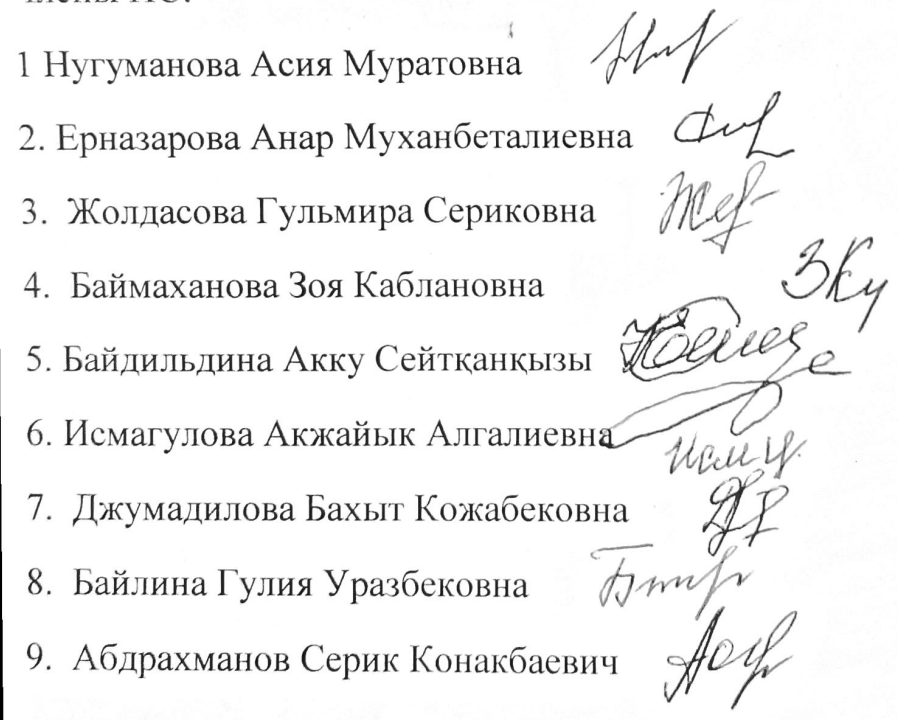 члены ПС:
1 Нугуманова Асия Муратовна
2. Ерназарова Анар Муханбеталиевна
3. Жолдасова Гульмира Сериковна
4. Баймаханова Зоя Каблановна
5. Байдильдина Акку Сейтқанқызы
6. Исмагулова Акжайык Алгалиевна
7. Джумадилова Бахыт Кожабековна
8. Байлина Гулия Уразбековна
9. Абдрахманов Серик Конакбаевич